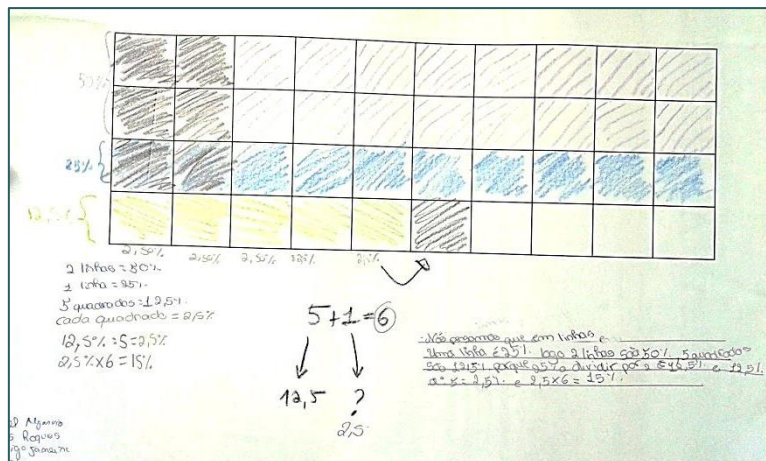 50%
25%
12,5%
2,50% 2,50% 2,50% 12,5% 2,5%
2 linhas = 50%
1 linha = 25%
5 quadrados = 12,5%
cada quadrado = 2,5%
12,5% : 5 = 2,5%
2,5% x 6 = 15%
5+1=6
12,5 ?
2,5
Nós pensamos que em linhas e
Uma linha é 25% logo 2 linhas são 50%. 5 quadrados
são 12,5% porque 25% a dividir por 2 é 12,5% e 12,5%
5 = 2,5% e 2,5x6 = 15%.
Roques